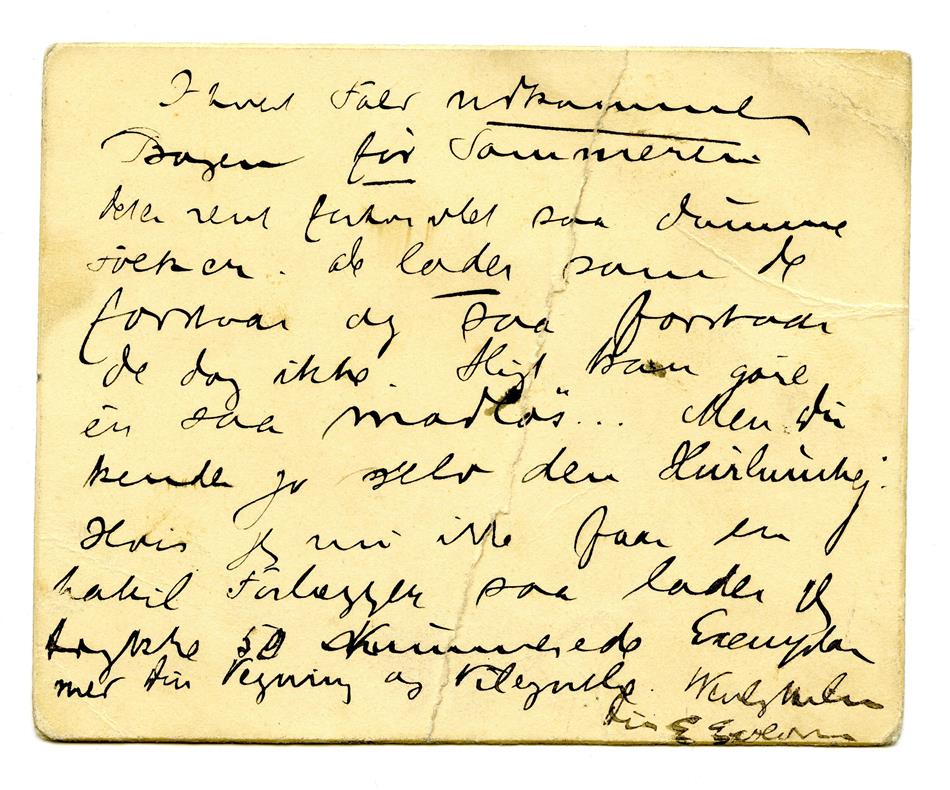 I hvert Fald udkommer
Bogen før Sommeren
det er rent forbandet saa dumme
Folk er. de lader som de
forstaar og saa forstaar
de dog ikke. Sligt kan gøre
én saa modløs... Men du
kender jo selv den
Hvis jeg nu ikke faar en
habil Forlægger saa lader jeg
trykke 50 Nummerede Exemplar
med din Tegning og Tilegnelse.
din E